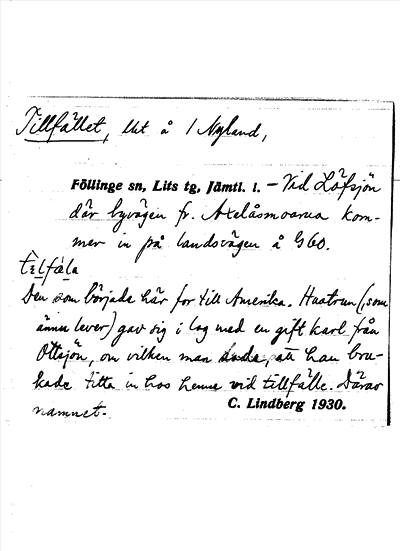 Tillfället, lht å 1 Nyland,
Föllinge sn, Lits tg, Jämtl. l. – Vid Löfsjön
där byvägen fr. Axelåsmoarna kom-
mer in på landsvägen å G60.
Den som började här for till Amerika. Hustrun (som
ännu lever) gav sig i lag med en gift karl från
Ottsjön, om vilken man sade, att han bru-
kade titta in hos henne vid tillfälle. Därav
namnet.
C. Lindberg 1930.